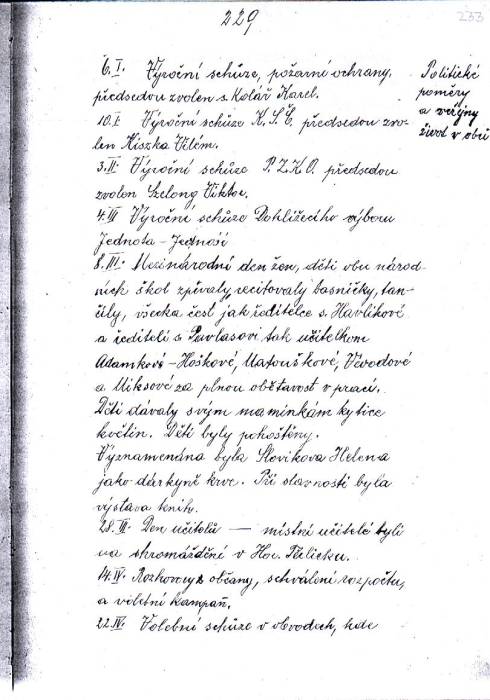 229
233
6.I. Výroční schůze, požární ochrany,
předsedou zvolen s. Kolář Karel.
Politické
poměry
a veřejný
život v obci
10.I Výroční schůze K.S.Č. předsedou zvo-
len Kiszka Vilém.
3.II Výroční schůze P.Z.K.O. předsedou
zvolen Szelong Viktor.
4.III Výroční schůze Dohlížecího výboru
Jednota - Jedność
8.III. Mezinárodní den žen, děti obu národ-
ních škol zpívaly, recitovaly básničky, tan-
čily, všecka čest jak ředitelce s. Havlíkové
a řediteli s. Pavlasovi tak učitelkám
Adamkové - Hoškové, Matouškové, Vévodové
a Miksové za plnou obětavost v práci.
Děti dávaly svým maminkám kytice
květin. Děti byly pohoštěny.
Vyznamenána byla Slovikova Helena
jako dárkyně krve. Při slavnosti byla
výstava knih.
28.III. Den učitelů — místní učitelé byli
na shromáždění v Hor. Těrlicku.
14.IV. Rozhovory s občany, schválení rozpočtu,
a volební kampaň.
22.IV. Volební schůze v obvodech, kde